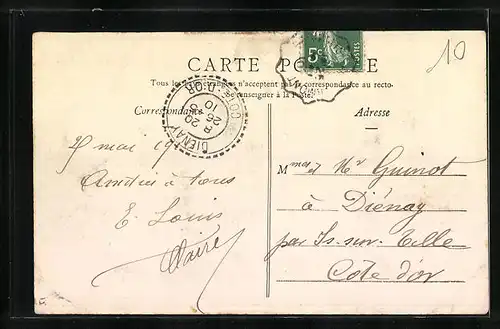 10
5c
CARTE POSTALE
Tous les pays étrangers n'acceptent pas la correspondance au recto.
Se renseigner à la Poste.
Correspondance
Adresse
DIENAY
COTE-D'OR
mai 19
Amitiés à tous
E. Louis
Claire
Mmes et Mr Guinot
à Diénay
par Is-sur-Tille
Côte d'or